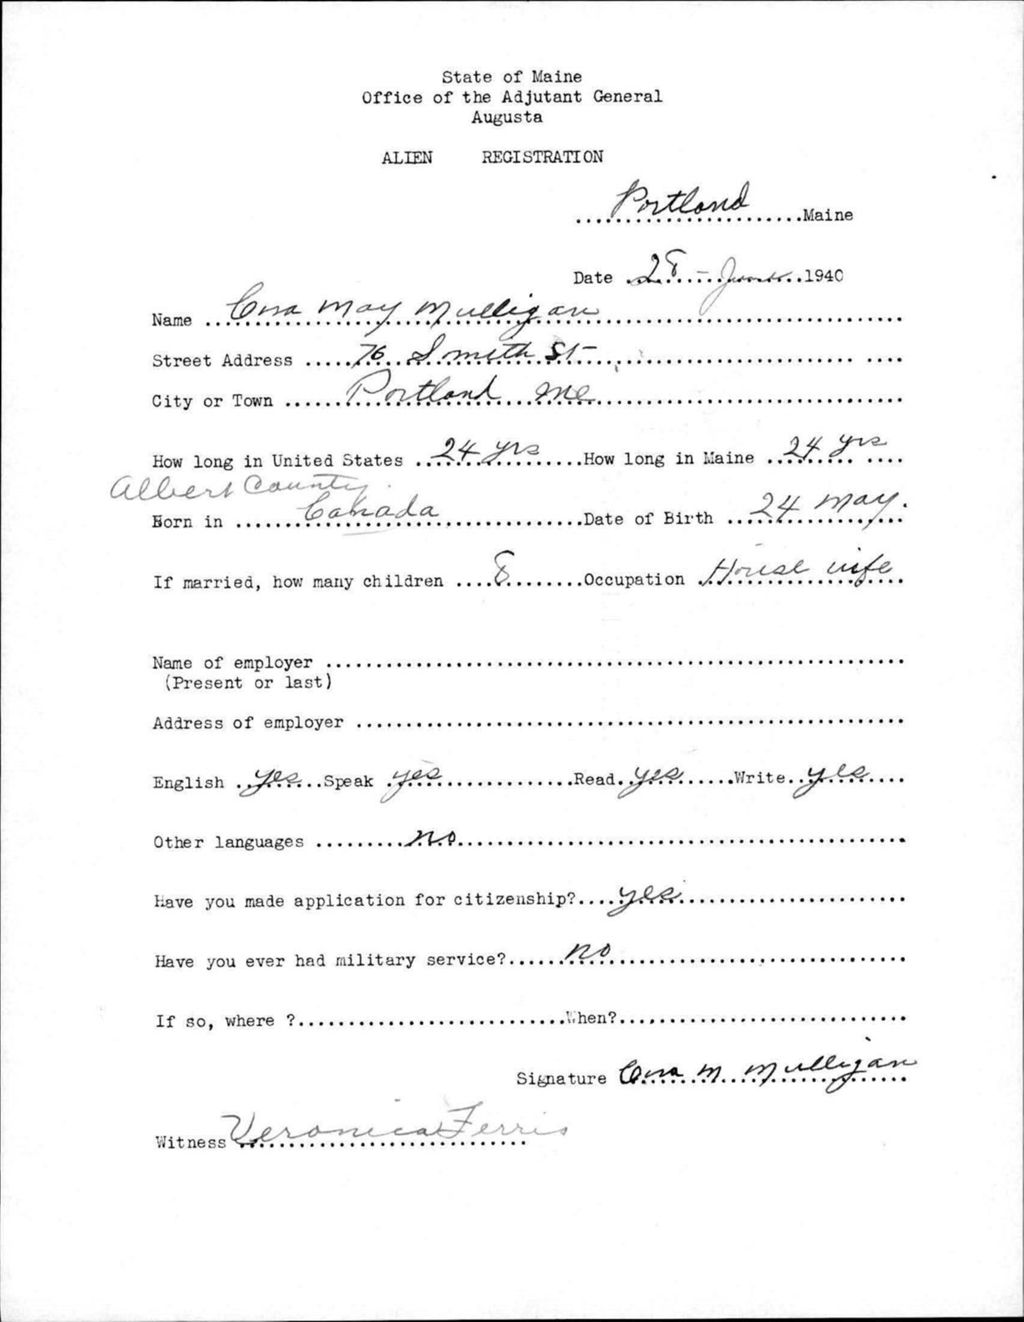 State of Maine
Office of the Adjutant General
Augusta
ALIEN REGISTRATION
Portland Maine
Date 28 - June 1940
Name Cora May Mulligan
Street Address 76 Smith St
City or Town Portland Me
How long in United States 24 yrs How long in Maine 24 yrs
Albert County
Born in Canada Date of Birth 24 May.
If married, how many children 8 Occupation House wife
Name of employer
(Present or last)
Address of employer
English yes Speak yes Read yes Write yes
Other languages no
Have you made application for citizenship? yes
Have you ever had military service? no
If so, where ? When?
Signature Cora M. Mulligan
Witness Veronica Ferris